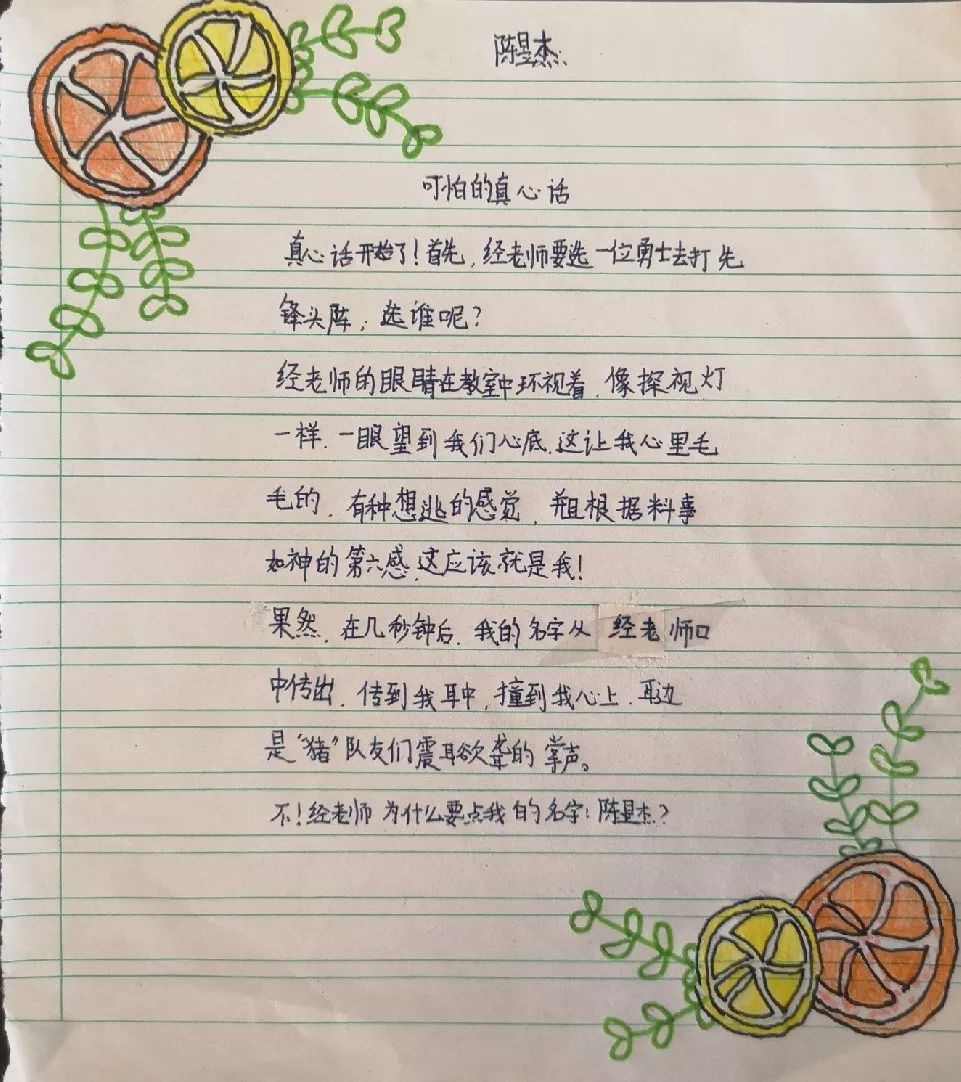 陈昱杰
可怕的真心话
真心话开始了！首先，经老师要选一位勇士去打先
锋头阵，选谁呢？
经老师的眼睛在教室中环视着，像探视灯
一样，一眼望到我们心底，这让我心里毛
毛的，有种想逃的感觉，并且根据料事
如神的第六感，这应该就是我！
果然，在几秒钟后，我的名字从经老师口
中传出，传到我耳中，撞到我心上，耳边
是“猪”队友们震耳欲聋的掌声。
不！经老师为什么要点我的名字：陈昱杰？